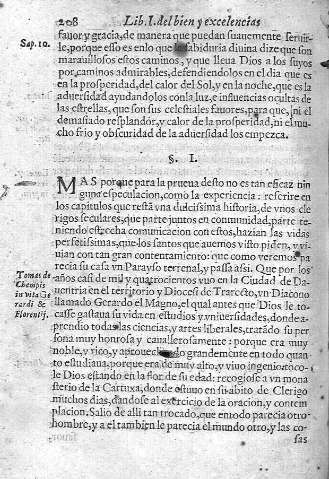 208 Lib. I. del bien y excelencias
fauor y gracia, de manera que puedan suauemente seruir-
Sap. 10.
le, porque esso es en lo que la sabiduria diuina dize que son
marauillosos estos caminos, y que lleua Dios a los suyos
por caminos admirables, defendiendolos en el dia que es
en la prosperidad, del calor del Sol, y en la noche, que es la
aduersidad ayudandolos con la luz, e influencias ocultas de
las estrellas, que son sus celestiales fauores, para que, ni el
demasiado resplandor, y calor de la prosperidad, ni el mu-
cho frio y obscuridad de la aduersidad los empezca.
§. I.
MAS porque para la prueua desto no es tan eficaz nin
guna especulacion, como la experiencia: referire en
los capitulos que restã vna dulcissima historia, de vnos cle
rigos seculares, que parte juntos en comunidad, parte te-
niendo estrecha comunicacion con estos, hazian las vidas
perfetissimas, que los santos que auemos visto piden, y vi-
uian con tan gran contentamiento: que como veremos pa
recia su casa vn Parayso terrenal, y passa assi. Que por los
Tomas de
Chempis
in vita Ge
rardi &
Florentij.
años casi de mil y quatrocientos vuo en la Ciudad de Da-
uentria en el territorio y Diocesi de Traiecto, vn Diacono
llamado Gerardo el Magno, el qual antes que Dios le to-
casse gastaua su vida en estudios y vniuersidades, donde a-
prendio todas las ciencias, y artes liberales, tratãdo su per
sona muy honrosa y cauallerosamente: porque era muy
noble, y rico, y aprouechando grandemente en todo quan
to estudiaua, porque era de muy alto, y viuo ingenio toco-
le Dios estando en la flor de su edad: recogiose a vn mona
sterio de la Cartuxa, donde estuuo en su abito de Clerigo
muchos dias, dandose al exercicio de la oracion, y contem
placion, Salio de alli tan trocado, que en todo parecia otro
hombre, y a el tambien le parecia el mundo otro, y las co-
sas